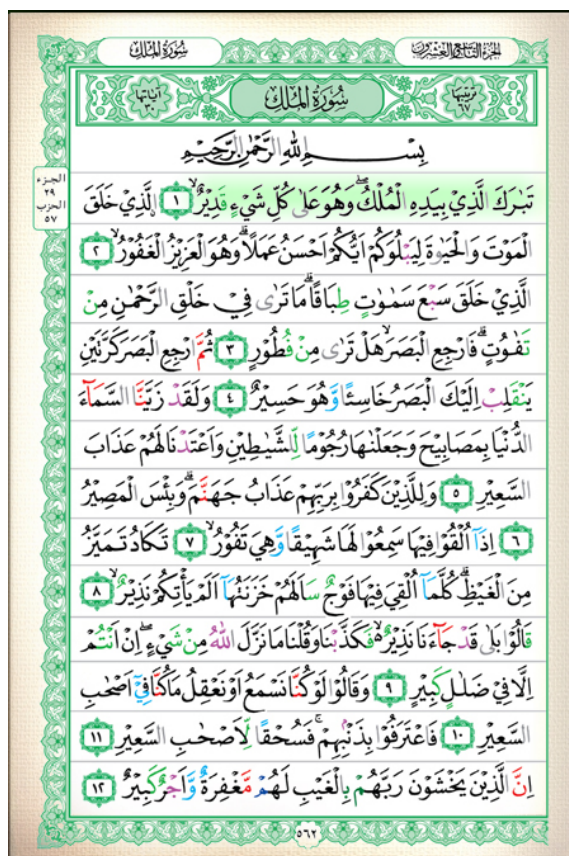 الجزء التاسع والعشرون
سُورَةُ المُلك
ترتيبها ٦٧
سُورَةُ المُلك
آياتها ٣٠
بِسْمِ اللهِ الرَّحْمٰنِ الرَّحِيْمِ
الجزء
٢٩
الحزب
٥٧
تَبٰرَكَ الَّذِيْ بِيَدِهِ الْمُلْكُ ۖ وَهُوَ عَلٰى كُلِّ شَيْءٍ قَدِيْرٌ ۙ ١ اِلَّذِيْ خَلَقَ
الْمَوْتَ وَالْحَيٰوةَ لِيَبْلُوَكُمْ اَيُّكُمْ اَحْسَنُ عَمَلًا ۗ وَهُوَ الْعَزِيْزُ الْغَفُوْرُ ۙ ٢
الَّذِيْ خَلَقَ سَبْعَ سَمٰوٰتٍ طِبَاقًا ۗ مَا تَرٰى فِيْ خَلْقِ الرَّحْمٰنِ مِنْ
تَفٰوُتٍ ۗ فَارْجِعِ الْبَصَرَ ۙ هَلْ تَرٰى مِنْ فُطُوْرٍ ٣ ثُمَّ ارْجِعِ الْبَصَرَ كَرَّتَيْنِ
يَنْقَلِبْ اِلَيْكَ الْبَصَرُ خَاسِئًا وَّهُوَ حَسِيْرٌ ٤ وَلَقَدْ زَيَّنَّا السَّمَآءَ
الدُّنْيَا بِمَصَابِيْحَ وَجَعَلْنٰهَا رُجُوْمًا لِّلشَّيٰطِيْنِ وَاَعْتَدْنَا لَهُمْ عَذَابَ
السَّعِيْرِ ٥ وَلِلَّذِيْنَ كَفَرُوْا بِرَبِّهِمْ عَذَابُ جَهَنَّمَ ۗ وَبِئْسَ الْمَصِيْرُ
٦ اِذَآ اُلْقُوْا فِيْهَا سَمِعُوْا لَهَا شَهِيْقًا وَّهِيَ تَفُوْرُ ۙ ٧ تَكَادُ تَمَيَّزُ
مِنَ الْغَيْظِ ۗ كُلَّمَآ اُلْقِيَ فِيْهَا فَوْجٌ سَاَلَهُمْ خَزَنَتُهَآ اَلَمْ يَأْتِكُمْ نَذِيْرٌ ٨
قَالُوْا بَلٰى قَدْ جَآءَنَا نَذِيْرٌ ەۙ فَكَذَّبْنَا وَقُلْنَا مَا نَزَّلَ اللهُ مِنْ شَيْءٍ ۖ اِنْ اَنْتُمْ
اِلَّا فِيْ ضَلٰلٍ كَبِيْرٍ ٩ وَقَالُوْا لَوْ كُنَّا نَسْمَعُ اَوْ نَعْقِلُ مَا كُنَّا فِيْٓ اَصْحٰبِ
السَّعِيْرِ ١٠ فَاعْتَرَفُوْا بِذَنْۢبِهِمْ ۚ فَسُحْقًا لِّاَصْحٰبِ السَّعِيْرِ ١١
اِنَّ الَّذِيْنَ يَخْشَوْنَ رَبَّهُمْ بِالْغَيْبِ لَهُمْ مَّغْفِرَةٌ وَّاَجْرٌ كَبِيْرٌ ١٢
٥٦٢